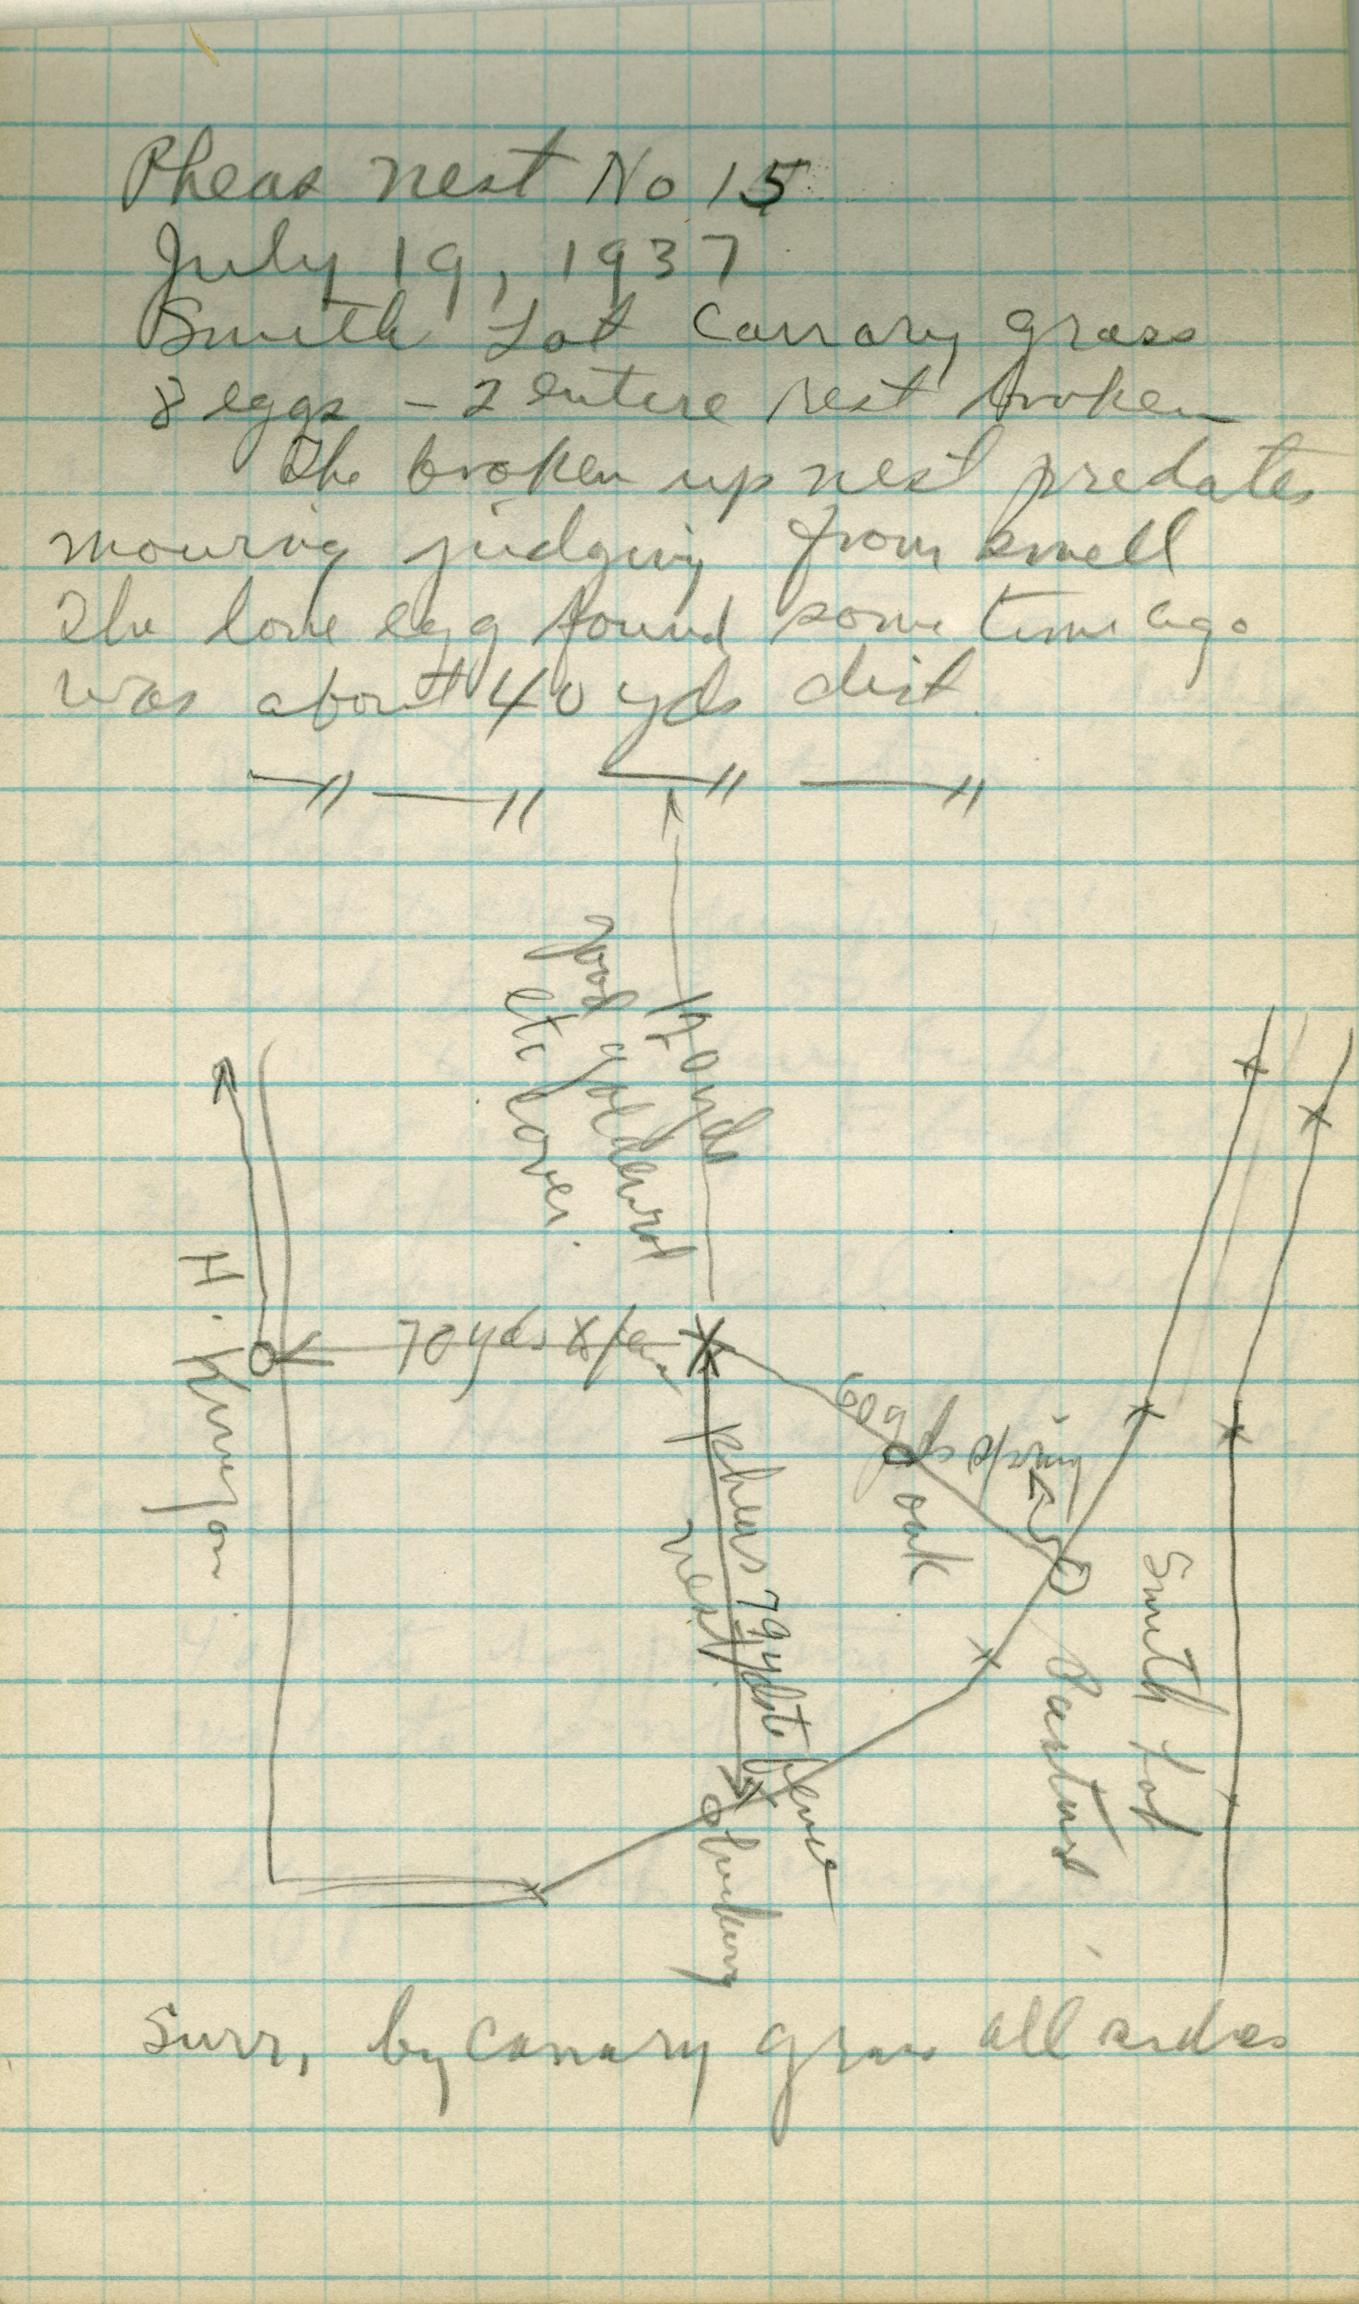 Pheas nest No 15
July 19, 1937
Smith Lot Canary grass
8 eggs - 2 entire rest broken
The broken up nest predates
mowing judging from smell
The lone egg found some time ago
was about 40 yds dist.
120 yds
good goldenrod
etc cover.
H. Kenyon
70 yds
60 yds spring
oak
pheas
nest.
79 yds to fence
Smith Lot
Pasture
Surr, by canary grass all sides